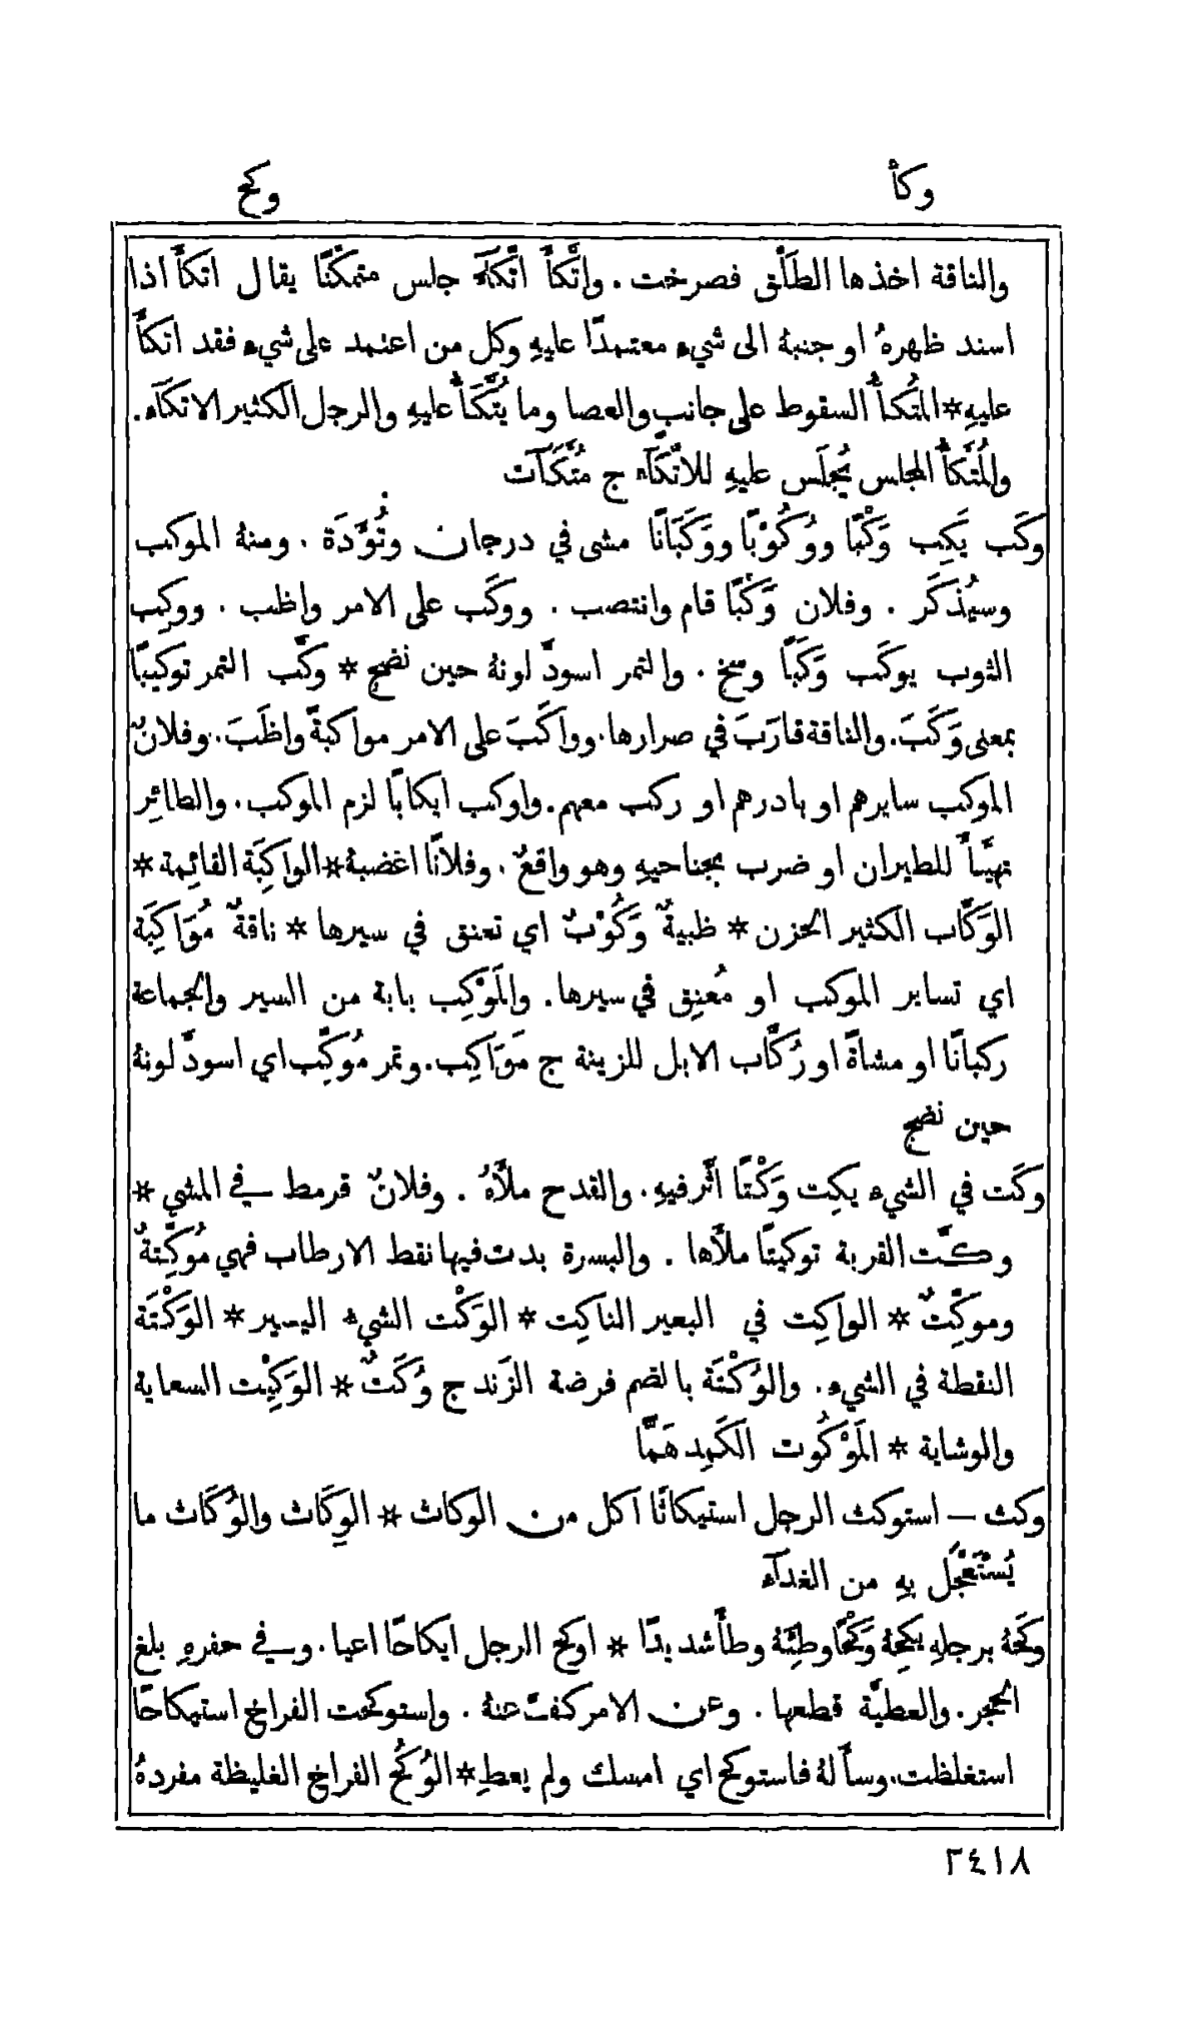 وكأ
وكح
والناقة اخذها الطَلْق فصرخت . واتَّكأَ اتّكآءً جلس متمكّنًا يقال اتكأَ اذا
اسند ظهرهُ او جنبهُ الى شيءٍ معتمدًا عليهِ وكل من اعتمد على شيءٍ فقد اتكأَ
عليهِ * التُكأَة السقوط على جانب والعصا وما يُتَّكَأُ عليهِ والرجل الكثير الاتكآء .
والمُتَّكأُ المجلس يُجلَس عليهِ للاتّكآء ج مُتَّكَآت
وكَب يَكِب وَكْبًا ووُكُوْبًا ووَكَبَانًا مشى في درجان وتُؤَدَة . ومنهُ الموكب
وسيُذكَر . وفلان وَكْبًا قام وانتصب . ووكَب على الامر واظب . ووكِب
الثوب يوكَب وَكَبًا وسخ . والتمر اسودَّ لونهُ حين نضج * وكَّب التمر توكيبًا
بمعنى وَكَبَ . والناقة قارَبَ في صرارها . وواكَبَ على الامر مواكبةً واظَبَ . وفلانٌ
الموكب سايرهم او بادرهم او ركب معهم . واوكب ايكابًا لزم الموكب . والطائِر
تهيَّأَ للطيران او ضرب بجناحيهِ وهو واقعٌ . وفلانًا اغضبهُ * الواكِبَة القائِمة *
الوَكَّاب الكثير الحزن * ظبيةٌ وَكُوْبٌ اي تعنق في سيرها * ناقةٌ مُوَاكِبَة
اي تساير الموكب او مُعنِق في سيرها . والمَوْكِب بابة من السير والجماعة
ركبانًا او مشاةً او رُكَّاب الابل للزينة ج مَوَاكِب . وتمر مُوكِّب اي اسودَّ لونهُ
حين نضج
وكَت في الشيءِ يكِت وَكْتًا أثَّر فيهِ . والقدح ملأَهُ . وفلانٌ قرمط في المشي *
وكَّت القربة توكيتًا ملأَها . والبسرة بدت فيها نقط الارطاب فهي مُوَكِّتةٌ
وموكِّتٌ * الواكِت في البعير الناكِت * الوَكْت الشيءُ اليسير * الوَكْتَة
النقطة في الشيءِ . والوُكْتَة بالضم فرضة الزَند ج وُكَتٌ * الوَكِيْت السعاية
والوشاية * المَوْكُوت الكَمِد هَمًّا
وكث — استوكث الرجل استيكاثًا اكل من الوكاث * الوِكَاث والوُكَاث ما
يُسْتَعْجَل بهِ من الغدآء
وكَحَهُ برجلهِ يكِحهُ وَكْحًا وطِئَهُ وطأً شديدًا * اوكح الرجل ايكاحًا اعيا . وفي حفرهِ بلغ
الحجر . والعطيَّة قطعها . وعن الامر كفّ عنهُ . واستوكحت الفراخ استيكاحًا
استغلظت . وسأَلهُ فاستوكح اي امسك ولم يعطِ * الوُكُح الفراخ الغليظة مفردهُ
٢٤١٨